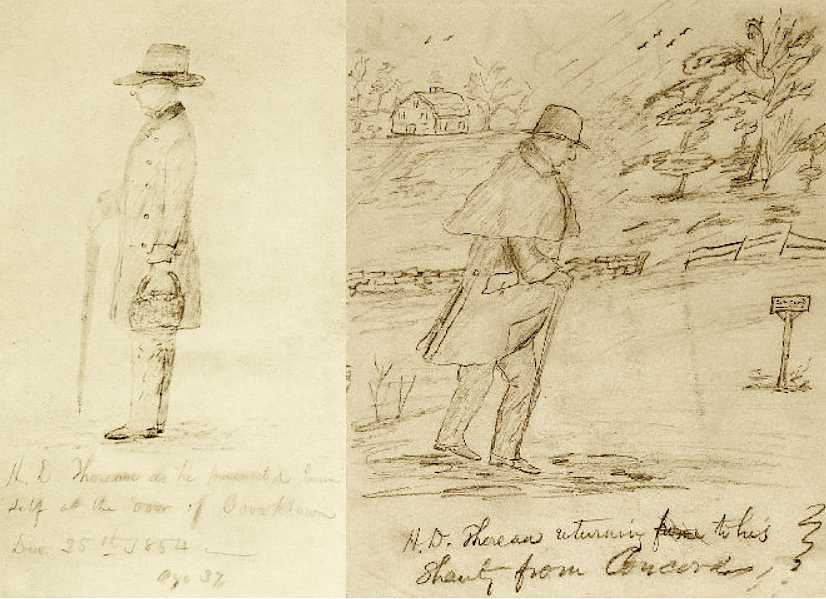 H. D. Thoreau as he presented him
self at the door of Brooklawn
Dec 25th 1854.
Age 37
Concord
H. D. Thoreau returning to his
Shanty from Concord